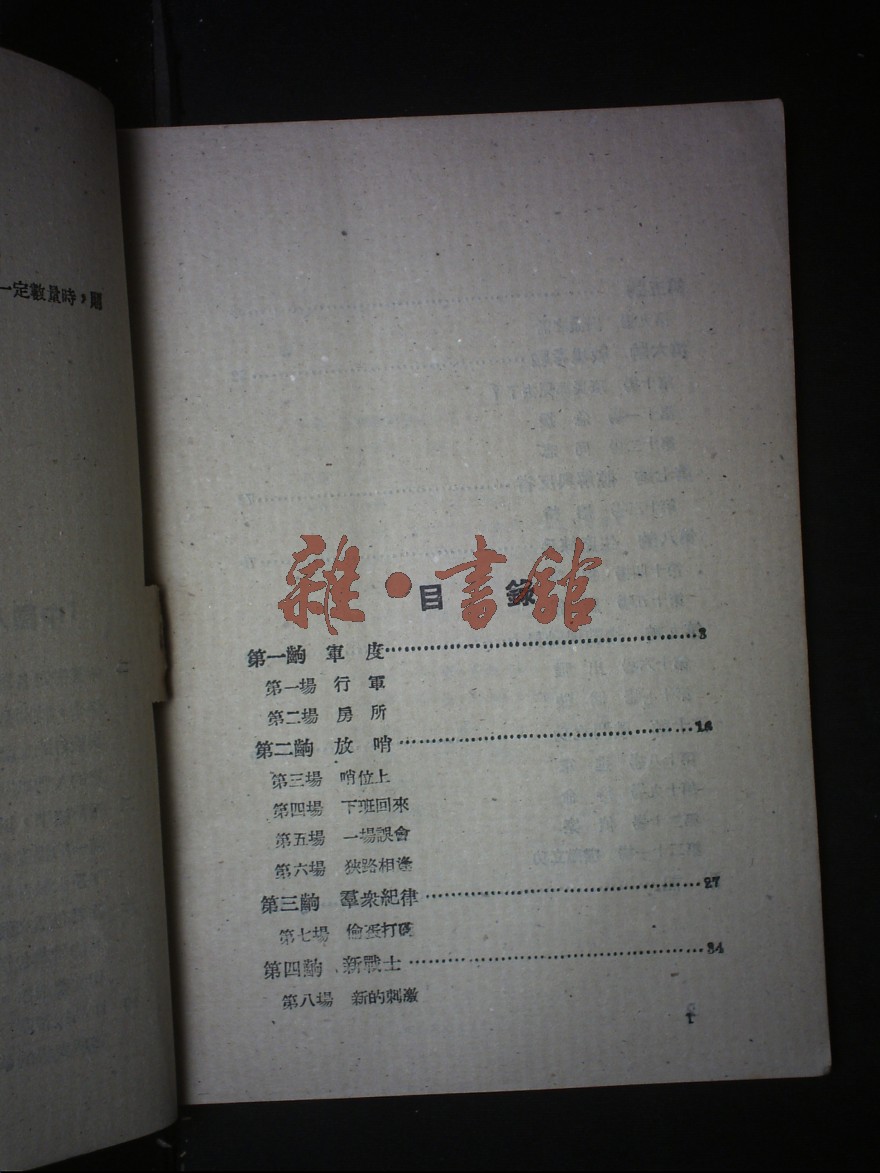 一定數量時，則
雜·書館
目錄
第一齣 軍度 3
第一場 行軍
第二場 房所
第二齣 放哨 16
第三場 哨位上
第四場 下班回來
第五場 一場誤會
第六場 狹路相逢
第三齣 羣衆紀律 27
第七場 偷張打
第四齣 新戰士 34
第八場 新的刺激
1